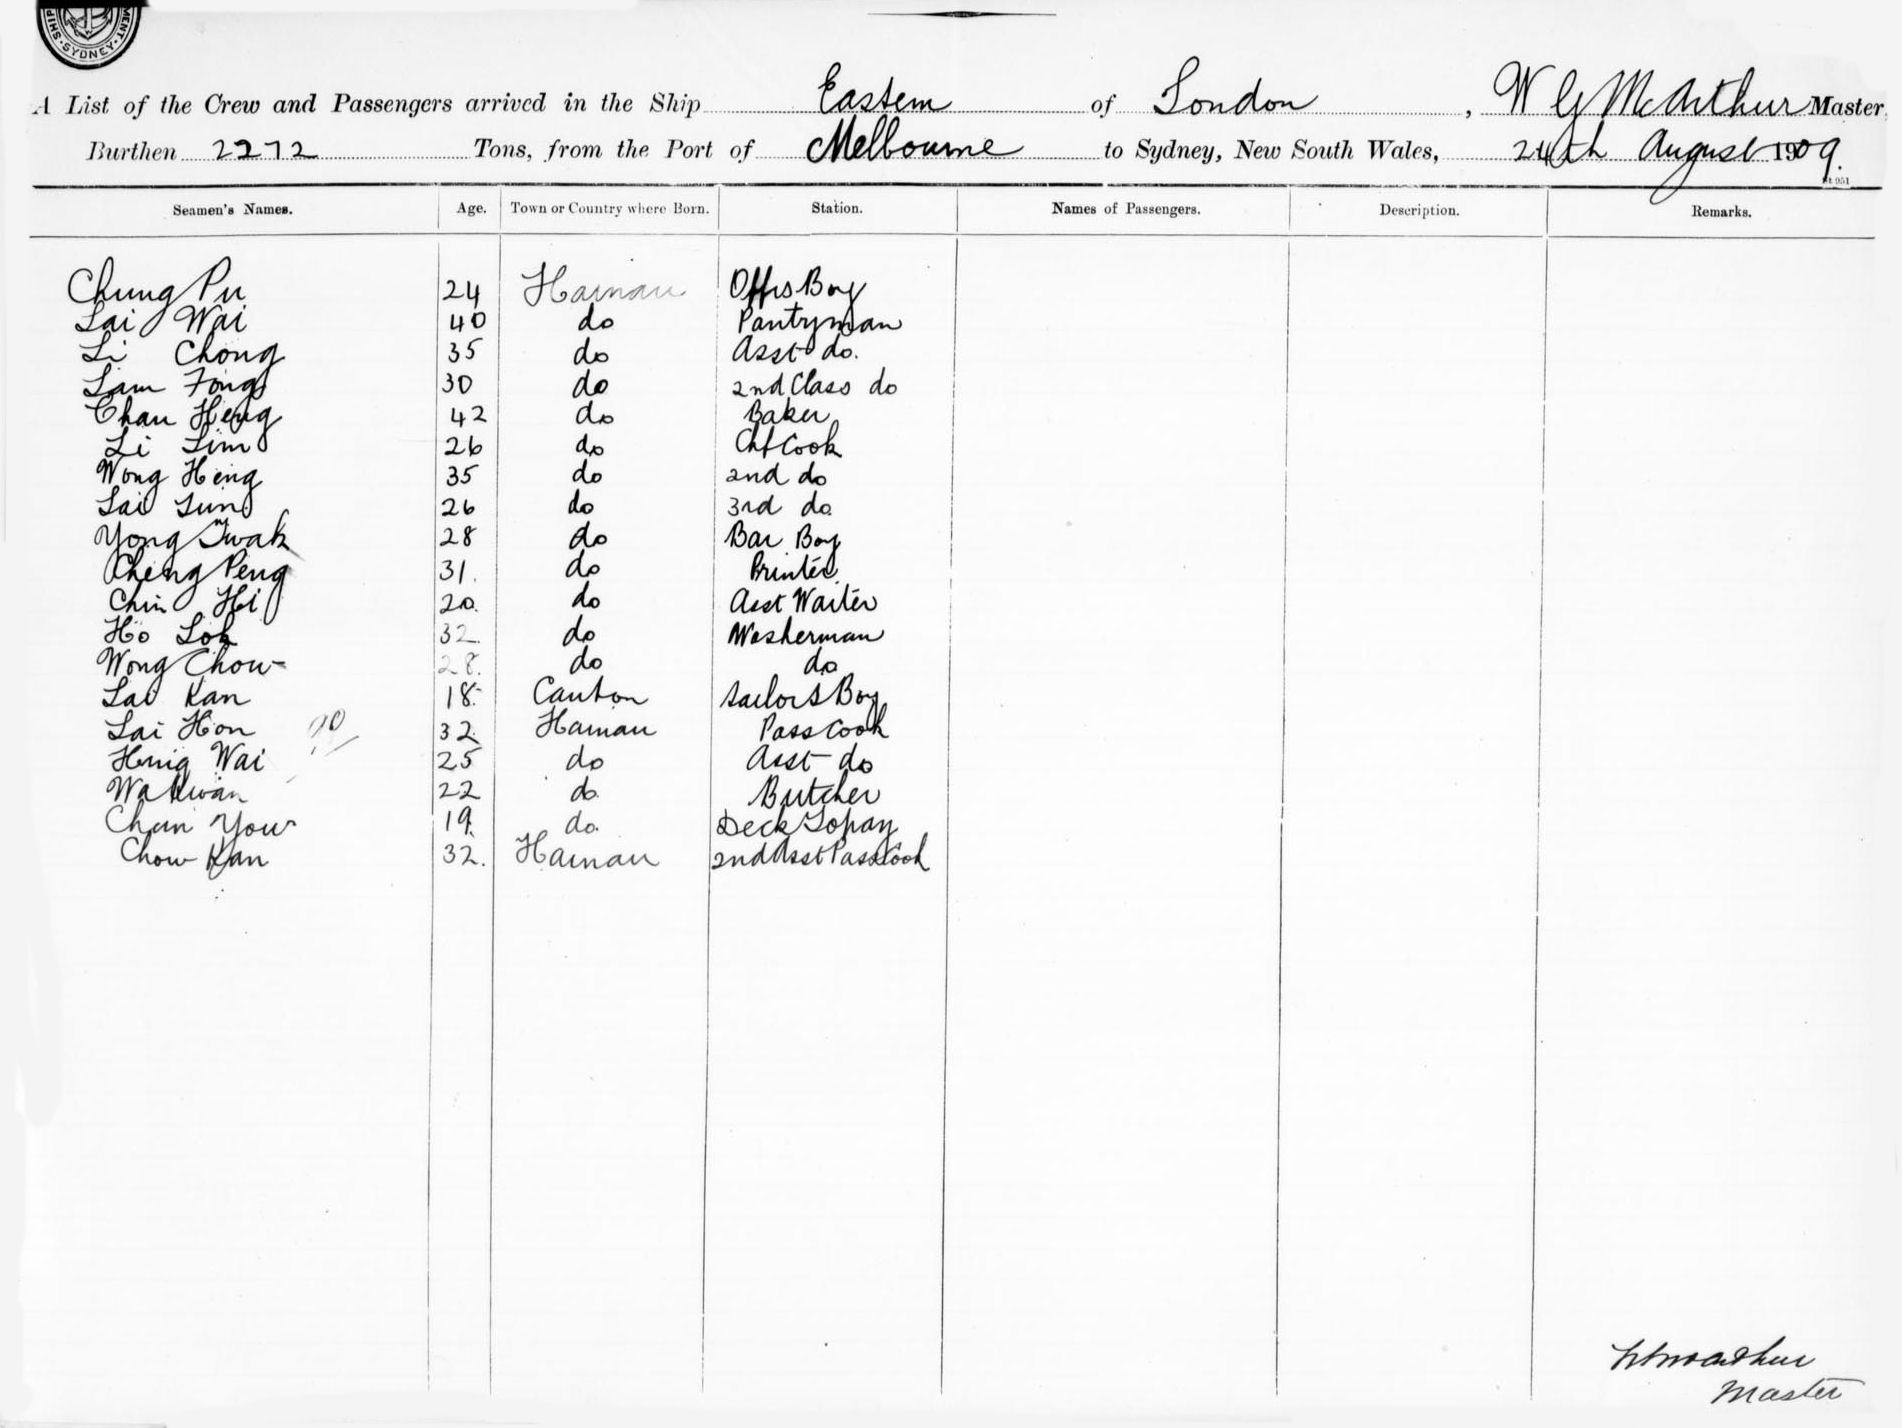 SHIP MENT SYDNEY
A List of the Crew and Passengers arrived in the Ship Eastern of London, W G McArthur Master
Burthen 2272 Tons, from the Port of Melbourne to Sydney, New South Wales, 24th August 1909.
Seamen's Names. Age. Town or Country where Born. Station. Names of Passengers. Description. Remarks.
Chung Pu 24 Hainan Offrs Boy
Lai Wai 40 do Pantryman
Li Chong 35 do Asst do.
Lam Fong 30 do 2nd Class do
Chan Heng 42 do Baker
Li Lim 26 do Chf Cook
Wong Heng 35 do 2nd do
Lai Lun 26 do 3rd do
Yong Twak 28 do Bar Boy
Cheng Peng 31. do Printer
Chin Hi 20. do Asst Waiter
Ho Lok 32. do Washerman
Wong Chow 28. do do
Lai Kan 18. Canton Sailors Boy
Lai Hon 32. Hainan Pass Cook
Heng Wai 25 do Asst do
Wa Kwan 22 do Butcher
Chun Yow 19. do. Deck Topay
Chow Kan 32. Hainan 2nd Asst Pass Cook
McArthur
Master